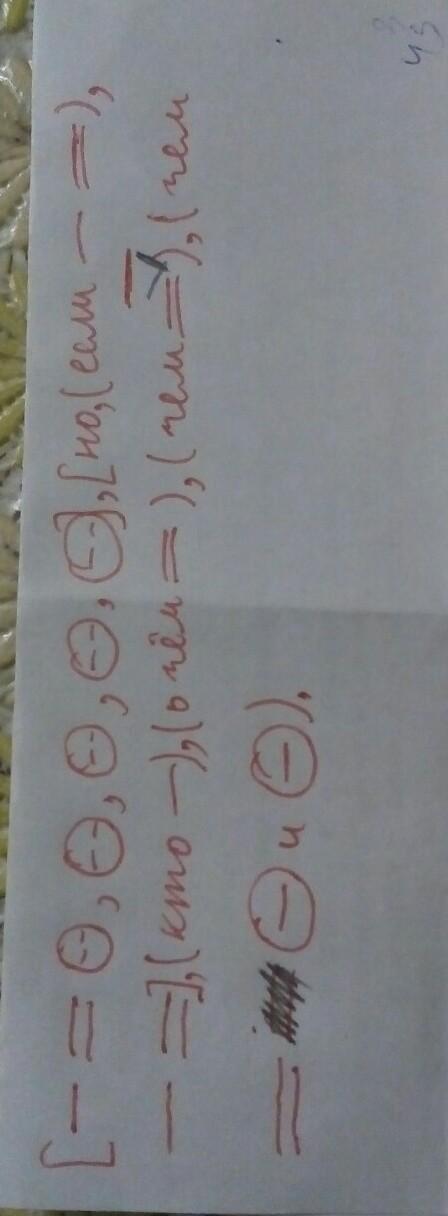 [— = ⊖, ⊖, ⊖, ⊖, ⊖], [но, (если — =),
— =], (кто —), (о чём =), (чем =), (чем
= ⊖ и ⊖).